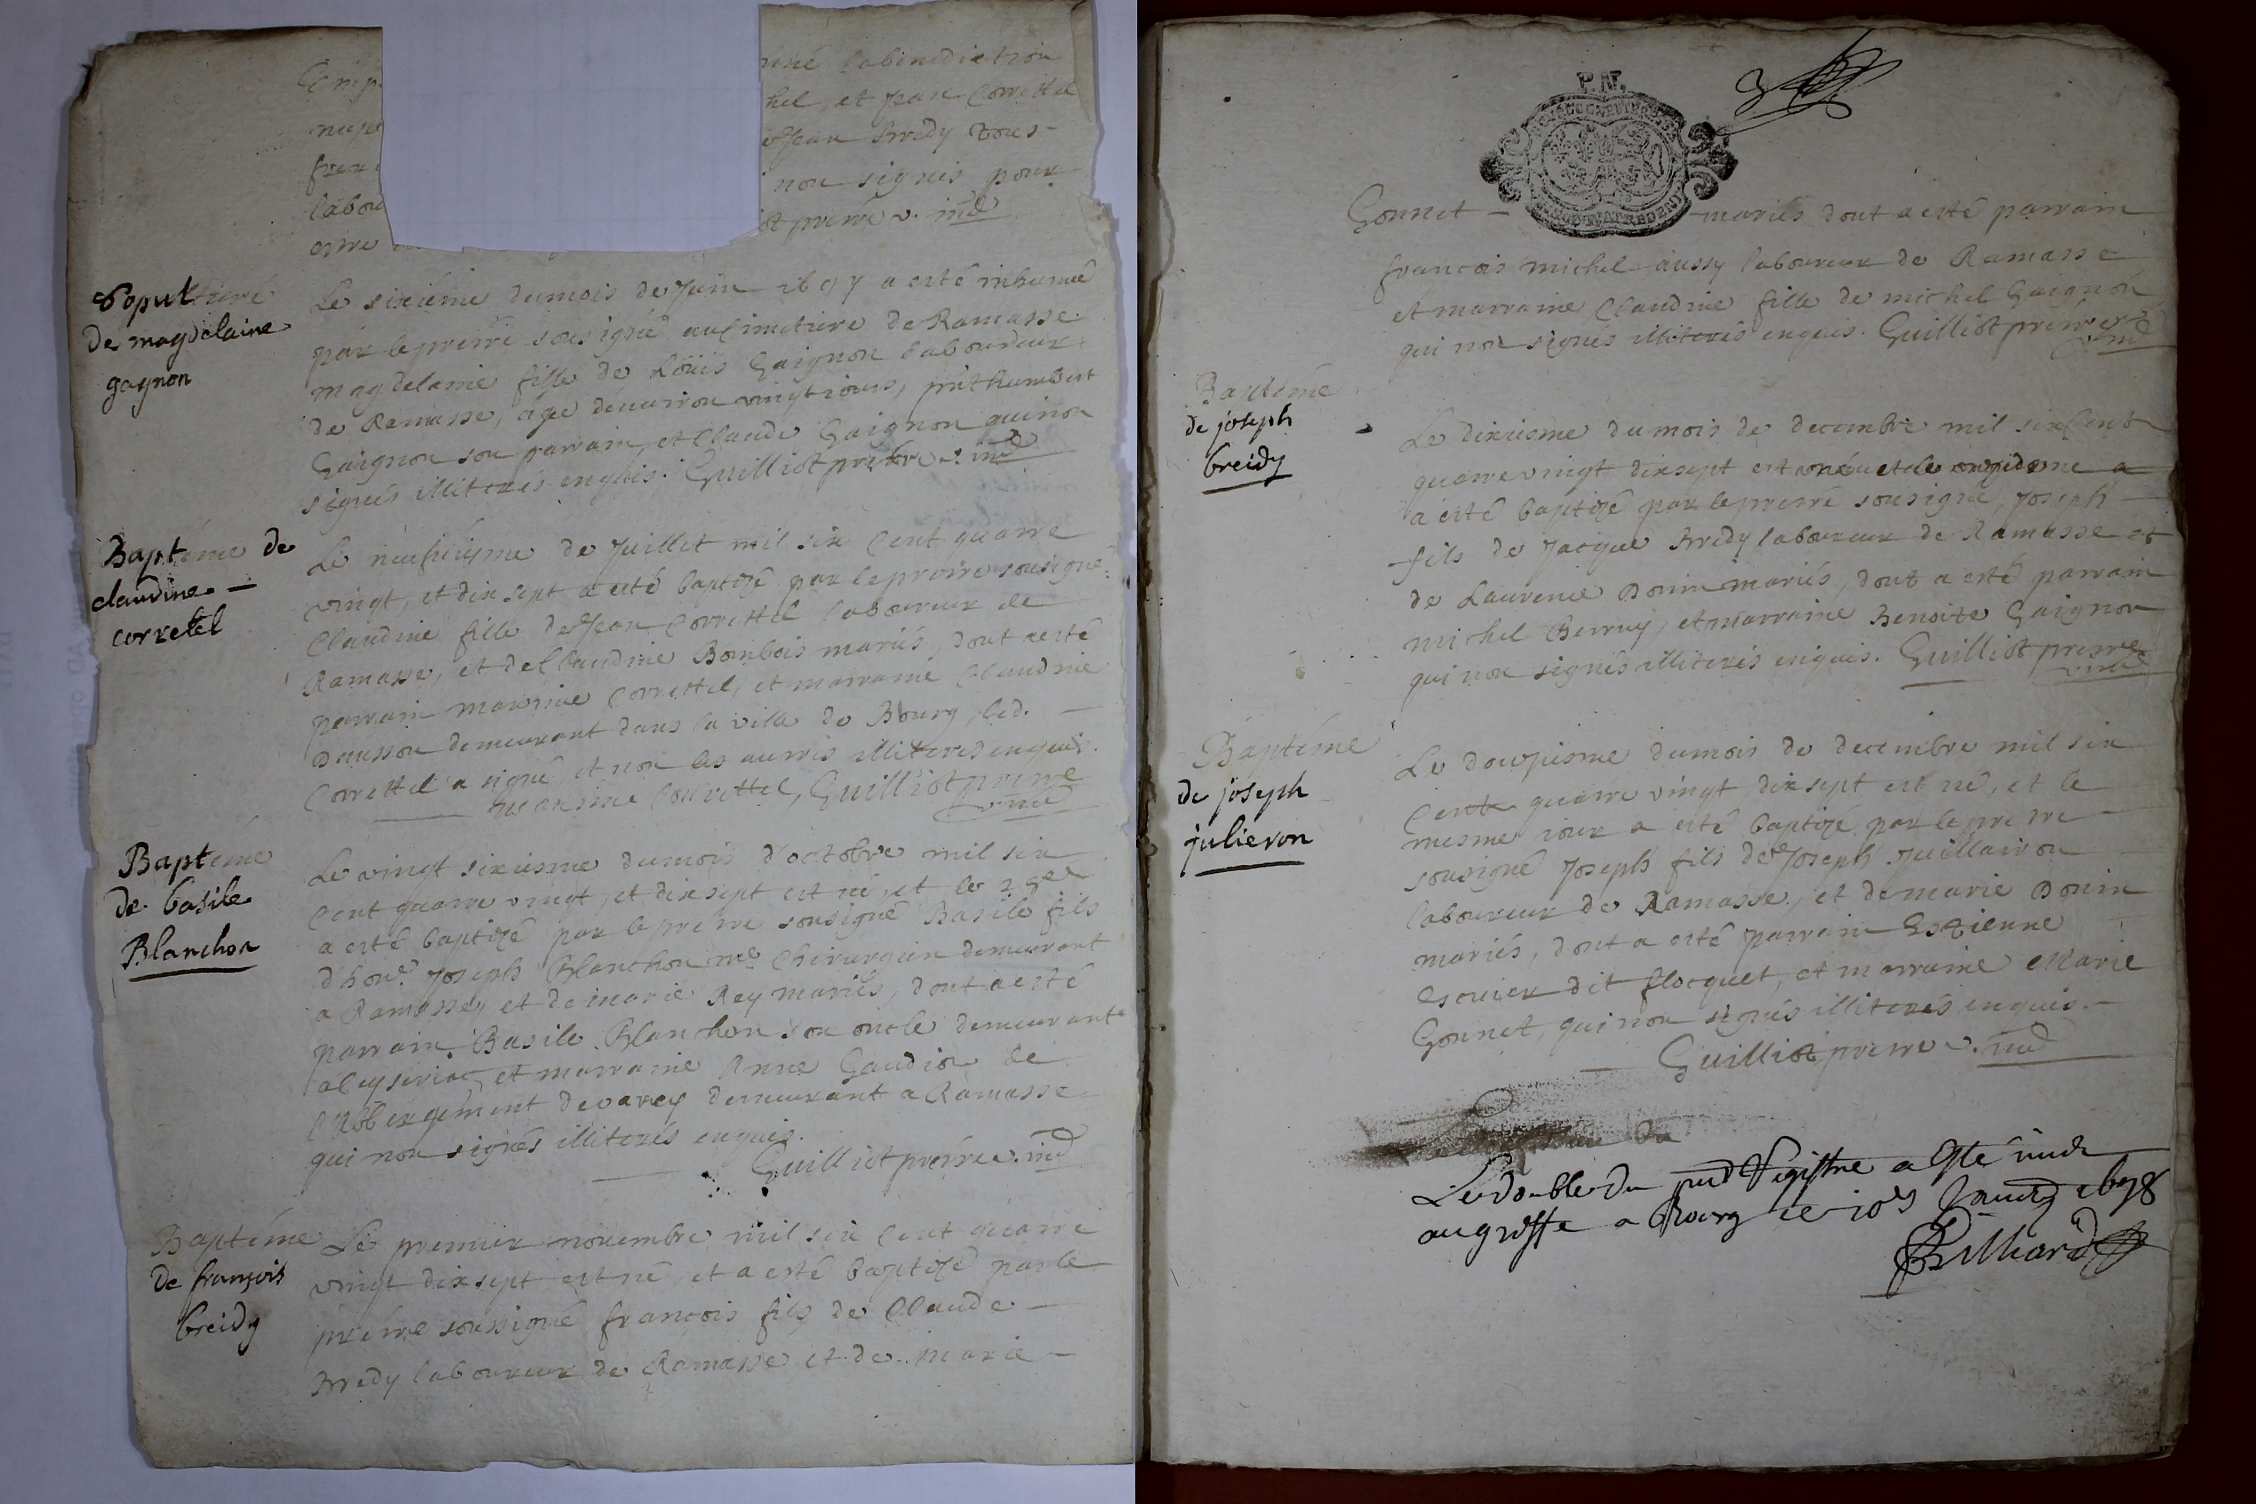 nné la benediction
hel, et jean Correttel
et Jean Bredy tous
labou
non signés pour
ot prêtre v. ind
Sepulture
de magdelaine
gagnon
Le sixiéme du mois de Juin 1697 a esté inhumée
par le prêtre sousigné au Cimetiere de Ramasse
magdelaine fille de Loüis Gaignon laboureur
de Ramasse, agée denuiron vingt iours, pnt humbert
Gaignon son parrain, et Claude Gaignon qui non
signés illiterés enquis. Guilliot prêtre v. ind
Baptéme de
claudine
corretel
Le neufuiesme de Juillet mil six Cent quatre
vingt, et dix sept a esté baptizé par le prêtre sousigné
Claudine fille de Jean Correttel laboureur de
Ramasse, et de Claudine Bombois mariés, dont a esté
parrain maxime Correttel, et marraine Claudine
demeurant dans la ville de Bourg, led.
Correttel a signé, et non les autres illiterés enquis.
maxime Courettel, Guilliot prêtre
v. ind
Baptéme
de basile
Blanchon
Le vingt sixiesme du mois d'octobre mil six
Cent quatre vingt, et dix sept est né, et le
a esté baptizé par le prêtre sousigné Basile fils
d'hon.e Joseph Blanchon me Chirurgien demeurant
a Ramasse, et de marie Rey mariés, dont a esté
parrain Basile Blanchon son oncle demeurant
a leyseriat, et marraine Anne Gaudion de
l'Abbergement de varey demeurant a Ramasse
qui non signés illiterés enquis.
Guilliot prêtre v. ind
Baptéme
de françois
breidy
Le premier novembre mil six Cent quatre
vingt dix sept est né, et a esté baptizé par le
prêtre soussigné françois fils de Claude
Bredy laboureur de Ramasse et de marie
P. N.
Gonnet mariés dont a esté parrain
françois michel aussy laboureur de Ramasse
et marraine Claudine fille de michel Gaignon
qui non signés illiterés enquis. Guilliot prêtre
v. ind
Baptéme
de joseph
breidy
Le dixiesme du mois de decembre mil six Cent
quatre vingt dix sept est né et le
a esté baptizé par le prêtre sousigné Joseph
fils de Jacque Bredy laboureur de Ramasse et
de Laurence Donin mariés, dont a esté parrain
michel Berruy, et marraine Benoite Gaignon
qui non signés illiterés enquis. Guilliot prêtre
v. ind
Baptéme
de joseph
julieron
Le douziesme du mois de decembre mil six
Cent quatre vingt dix sept est né, et le
mesme iour a esté baptizé par le prêtre
sousigné Joseph fils de Joseph Juillairon
laboureur de Ramasse, et de marie Donin
mariés, dont a esté parrain Estienne
Escuier dit flocquet, et marraine Marie
Gonnet, qui non signés illiterés enquis.
Guilliot prêtre v. ind
Le double du pnt Registre a esté mis
au greffe a Bourg ce 10e Janvier 1698
Billiard